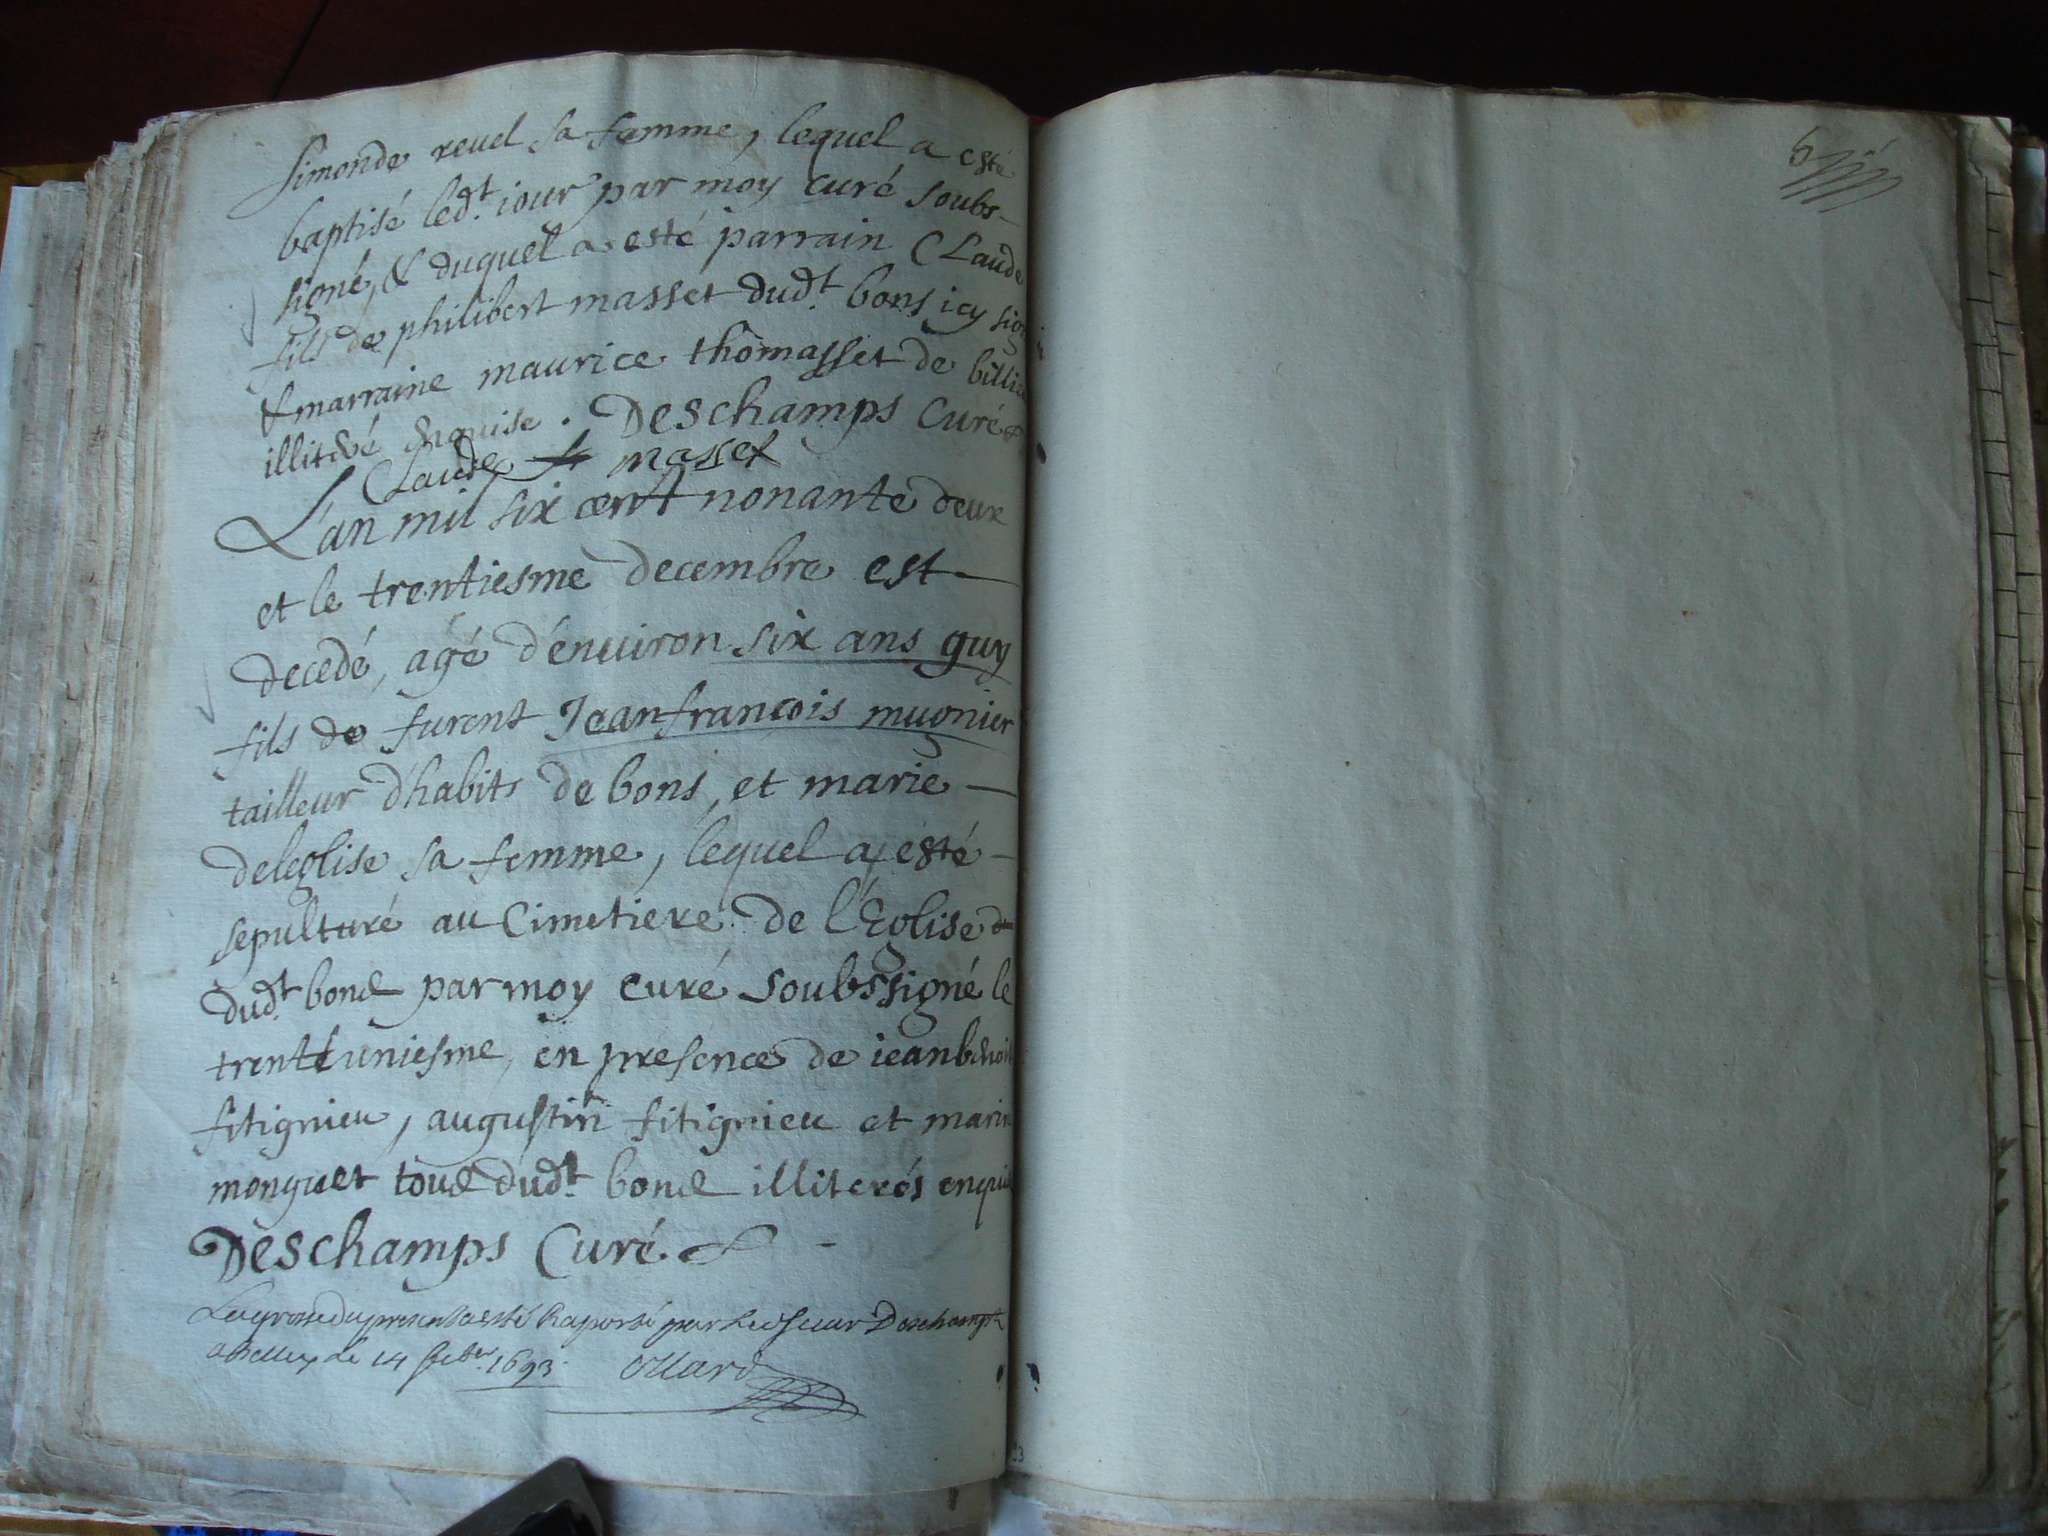 simonde revel sa femme, lequel a esté
baptisé led.t iour par moy curé soubs-
signé, & duquel a esté parrain Claude
fils de philibert masset dud.t bons icy sig
& marraine maurice thomasset de billi
illiteré enquise. Deschamps Curé
Claude masset
L'an mil six cent nonante deux
et le trentiesme decembre est
decedé, agé d'enuiron six ans guy
fils de furent Jeanfrançois mugnier
tailleur d'habits de bons, et marie
deleglise sa femme, lequel a esté
sepulturé au Cimetiere de l'Eglise
dud.t bons par moy curé soubssigné le
trenteuniesme, en presence de ieanbenoit
fitignieu, augustin fitignieu et marin
monguet tous dud.t bons illiterés enquis
Deschamps Curé.
La grosse du present a esté Raporté par led sieur Deschamps
a Belley le 14 1693. Ollard